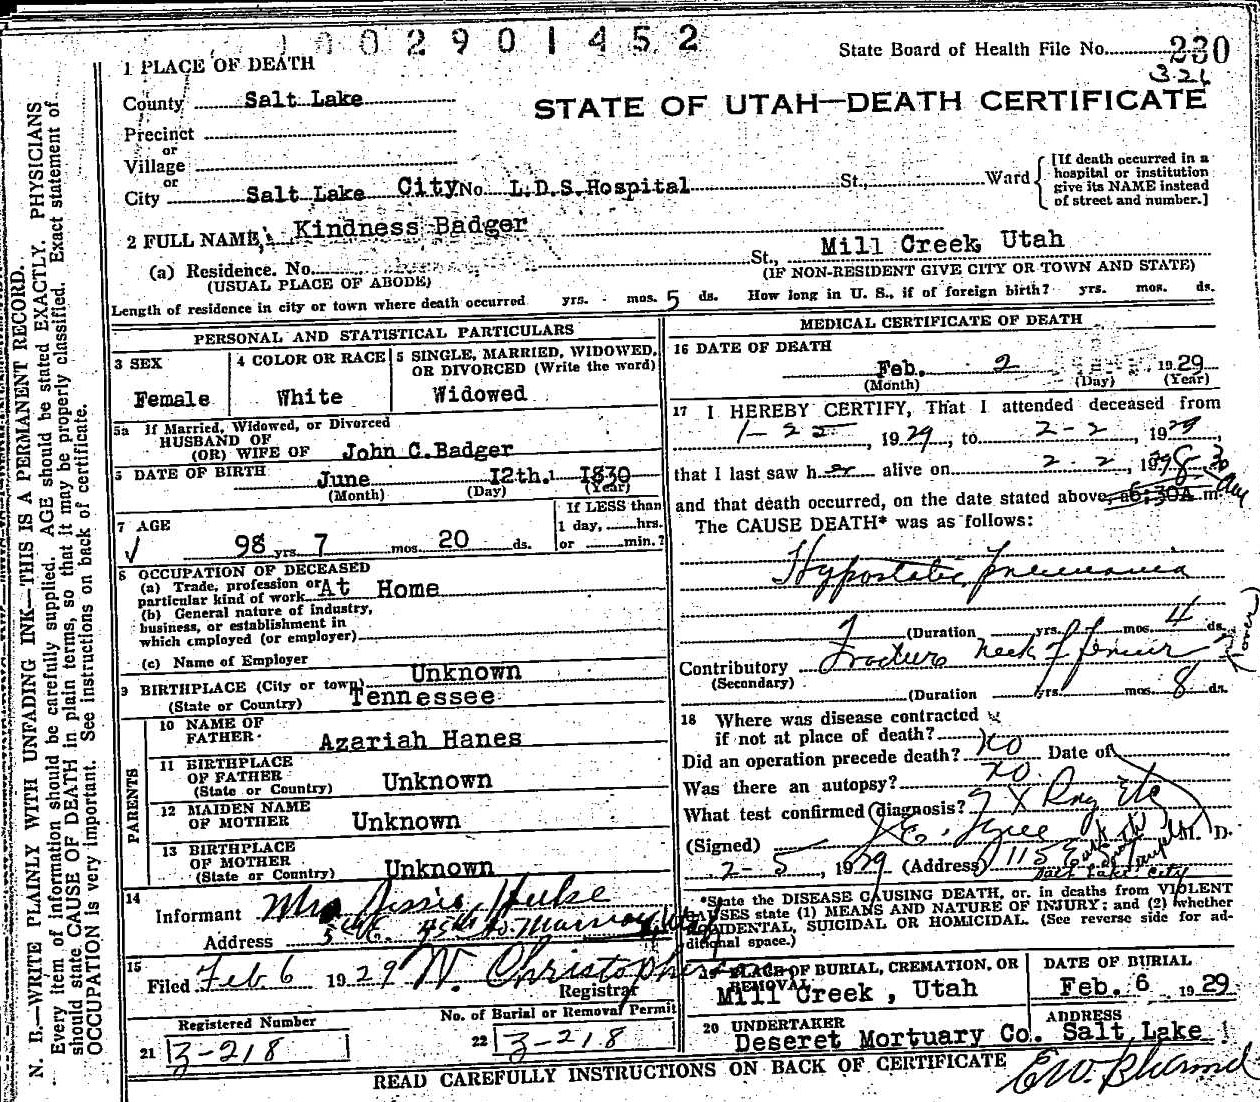 1002901452
State Board of Health File No. 230
3-21
1 PLACE OF DEATH
STATE OF UTAH—DEATH CERTIFICATE
County Salt Lake
Precinct
or
Village
or
City Salt Lake City No. L.D.S. Hospital St., Ward
[If death occurred in a
hospital or institution
give its NAME instead
of street and number.]
2 FULL NAME, Kindness Badger
(a) Residence. No. St., Mill Creek, Utah
(USUAL PLACE OF ABODE) (IF NON-RESIDENT GIVE CITY OR TOWN AND STATE)
Length of residence in city or town where death occurred yrs. - mos. 5 ds. How long in U. S., if of foreign birth? yrs. mos. ds.
PERSONAL AND STATISTICAL PARTICULARS
3 SEX
Female
4 COLOR OR RACE
White
5 SINGLE, MARRIED, WIDOWED,
OR DIVORCED (Write the word)
Widowed
5a If Married, Widowed, or Divorced
HUSBAND OF
(OR) WIFE OF John C. Badger
DATE OF BIRTH June 12th. 1830
(Month) (Day) (Year)
7 AGE
98 yrs. 7 mos. 20 ds.
If LESS than
1 day, hrs.
or min.?
OCCUPATION OF DECEASED
(a) Trade, profession or At Home
particular kind of work
(b) General nature of industry,
business, or establishment in
which employed (or employer)
(c) Name of Employer
9 BIRTHPLACE (City or town) Unknown
(State or Country) Tennessee
PARENTS
10 NAME OF
FATHER Azariah Hanes
11 BIRTHPLACE
OF FATHER Unknown
(State or Country)
12 MAIDEN NAME
OF MOTHER Unknown
13 BIRTHPLACE
OF MOTHER Unknown
(State or Country)
14 Informant Mrs Jessie Hulse
Address So. Murray, Utah
15 Filed Feb 6 1929 W. Christopherson
Registrar
Registered Number
21 3-218
No. of Burial or Removal Permit
22 3-218
MEDICAL CERTIFICATE OF DEATH
16 DATE OF DEATH
Feb. 2 1929
(Month) (Day) (Year)
17 I HEREBY CERTIFY, That I attended deceased from
1-22, 1929, to 2-2, 1929
that I last saw her alive on 2-2, 19
and that death occurred, on the date stated above, a6;30A m.
The CAUSE DEATH* was as follows:
Hypostatic pneumonia
(Duration yrs. mos. 4 ds.
Contributory Fracture neck of femur
(Secondary)
(over)
(Duration yrs. mos. 8 ds.
18 Where was disease contracted
if not at place of death?
Did an operation precede death? No Date of
Was there an autopsy? no.
What test confirmed diagnosis? X Ray etc
(Signed) M. D.
2-5, 1929 (Address) 115 East South Temple
Salt Lake City
*State the DISEASE CAUSING DEATH, or, in deaths from VIOLENT
CAUSES state (1) MEANS AND NATURE OF INJURY; and (2) whether
ACCIDENTAL, SUICIDAL OR HOMICIDAL. (See reverse side for ad-
ditional space.)
19 PLACE OF BURIAL, CREMATION, OR
REMOVAL
Mill Creek, Utah
DATE OF BURIAL
Feb. 6, 1929
20 UNDERTAKER
Deseret Mortuary Co.
ADDRESS
Salt Lake
READ CAREFULLY INSTRUCTIONS ON BACK OF CERTIFICATE
N. B.—WRITE PLAINLY WITH UNFADING INK—THIS IS A PERMANENT RECORD.
Every item of information should be carefully supplied. AGE should be stated EXACTLY. PHYSICIANS
should state CAUSE OF DEATH in plain terms, so that it may be properly classified. Exact statement of
OCCUPATION is very important. See instructions on back of certificate.